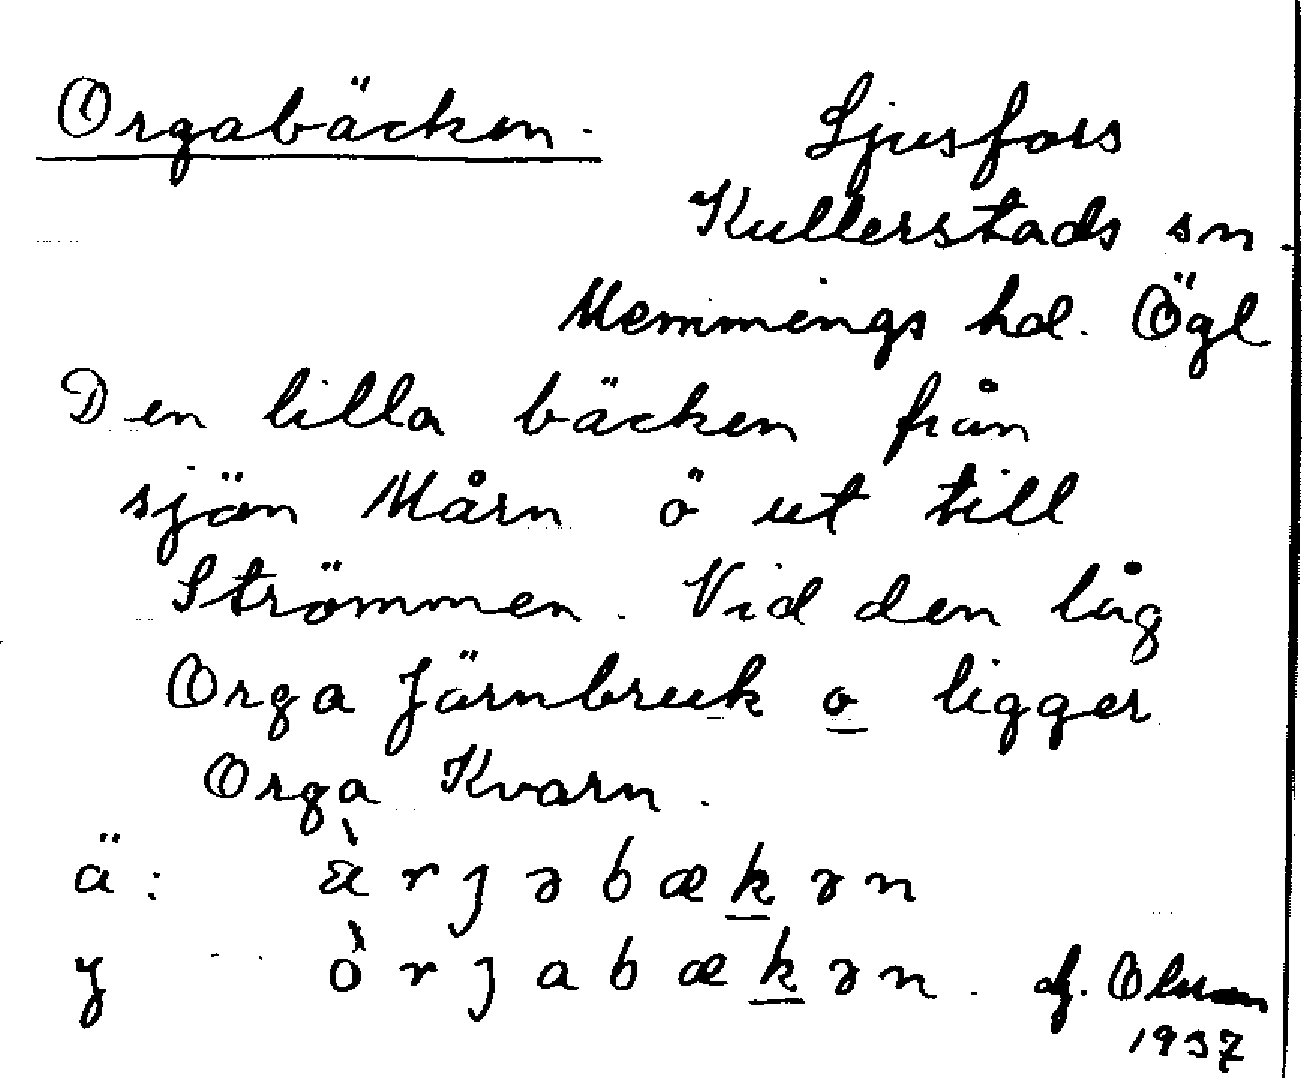 Orgabäcken.
Ljusfors
Kullerstads sn.
Memmings hd. Ögl
Den lilla bäcken från
sjön Mårn ö ut till
Strömmen. Vid den låg
Orga Järnbruk o ligger
Orga Kvarn.
ä: ὰrȷəbækən
y òrȷabækən.
1937